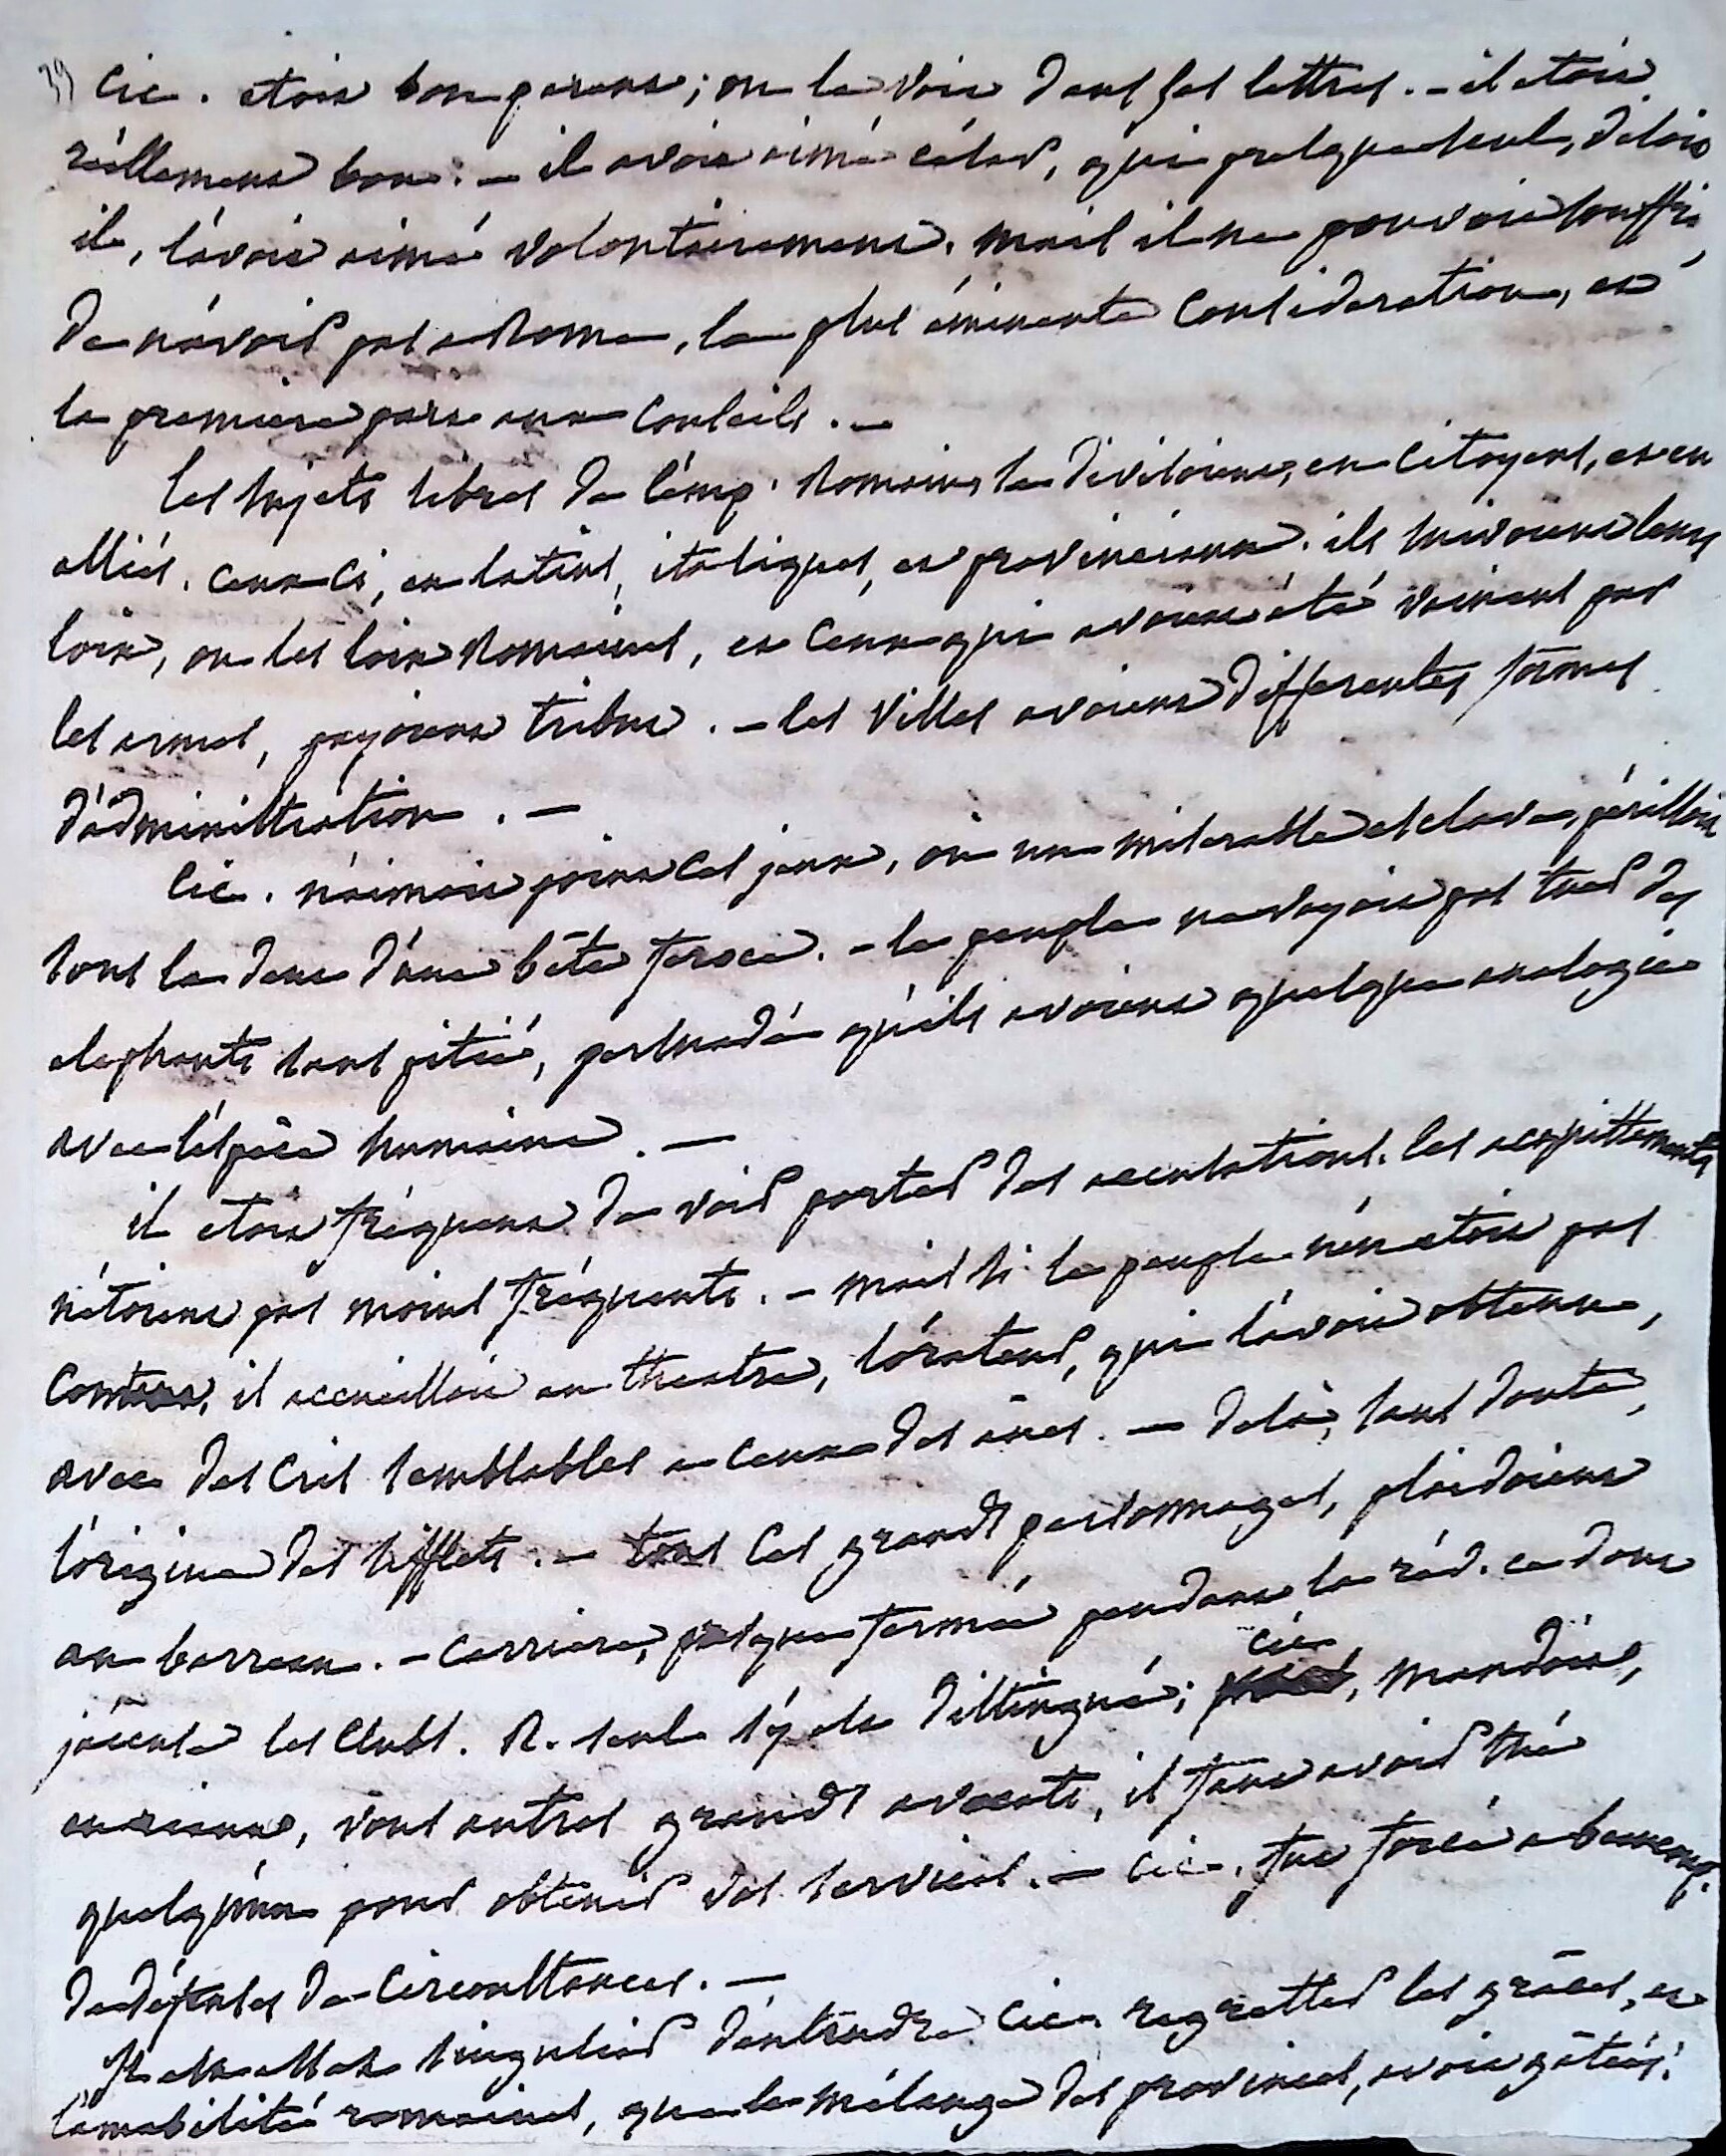 39 Cic. etoit bon parent; on le voit dans ses lettres. - il etoit
réellement bon. - il avoit aimé césar, qui presque seul, disoit
il, l'avoit aimé volontairement. mais il ne pouvoit souffrir,
de n'avoir pas a Rome, la plus éminente consideration, et
la premiere part aux conseils. -
les sujets libres de l'emp. Romain, se divisoient, en citoyens, et en
alliés. ceux ci, en latins, italiques, et provinciaux. ils suivoient leurs
loix, ou les loix Romaines, et ceux qui avoient été vaincus par
les armes, payoient tribut. - les villes avoient differentes formes
d'administration. -
Cic. n'aimoit point ces jeux, où un miserable esclave, périssoit
sous la dent d'une bête feroce. - le peuple ne voyoit pas tuer des
elephants sans pitié, persuadé qu'ils avoient quelque analogie
avec l'espèce humaine. -
il etoit fréquent de voir porter des accusations. les acquittements
n'étoient pas moins fréquents. - mais si le peuple n'en etoit pas
content, il accueilloit au theatre, l'orateur, qui l'avoit obtenu,
avec des cris semblables a ceux des ânes. - delà, sans doute,
l'origine des sifflets. - tous ces grands personnages, plaidoient
au barreau. - carriere, presque fermée pendant la rév. ce dont
les clubs. R. seul s'y est distingué; Cic,
vous autres grands avocats, il faut avoir tué
quelqu'un pour obtenir vos services. - Cic. fut forcé a beaucoup
de défenses de circonstances. -
Il est assez singulier d'entendre Cic. regretter les grâces, et
l'amabilité romaines, que le mélange des provinces, avoit gâtées.